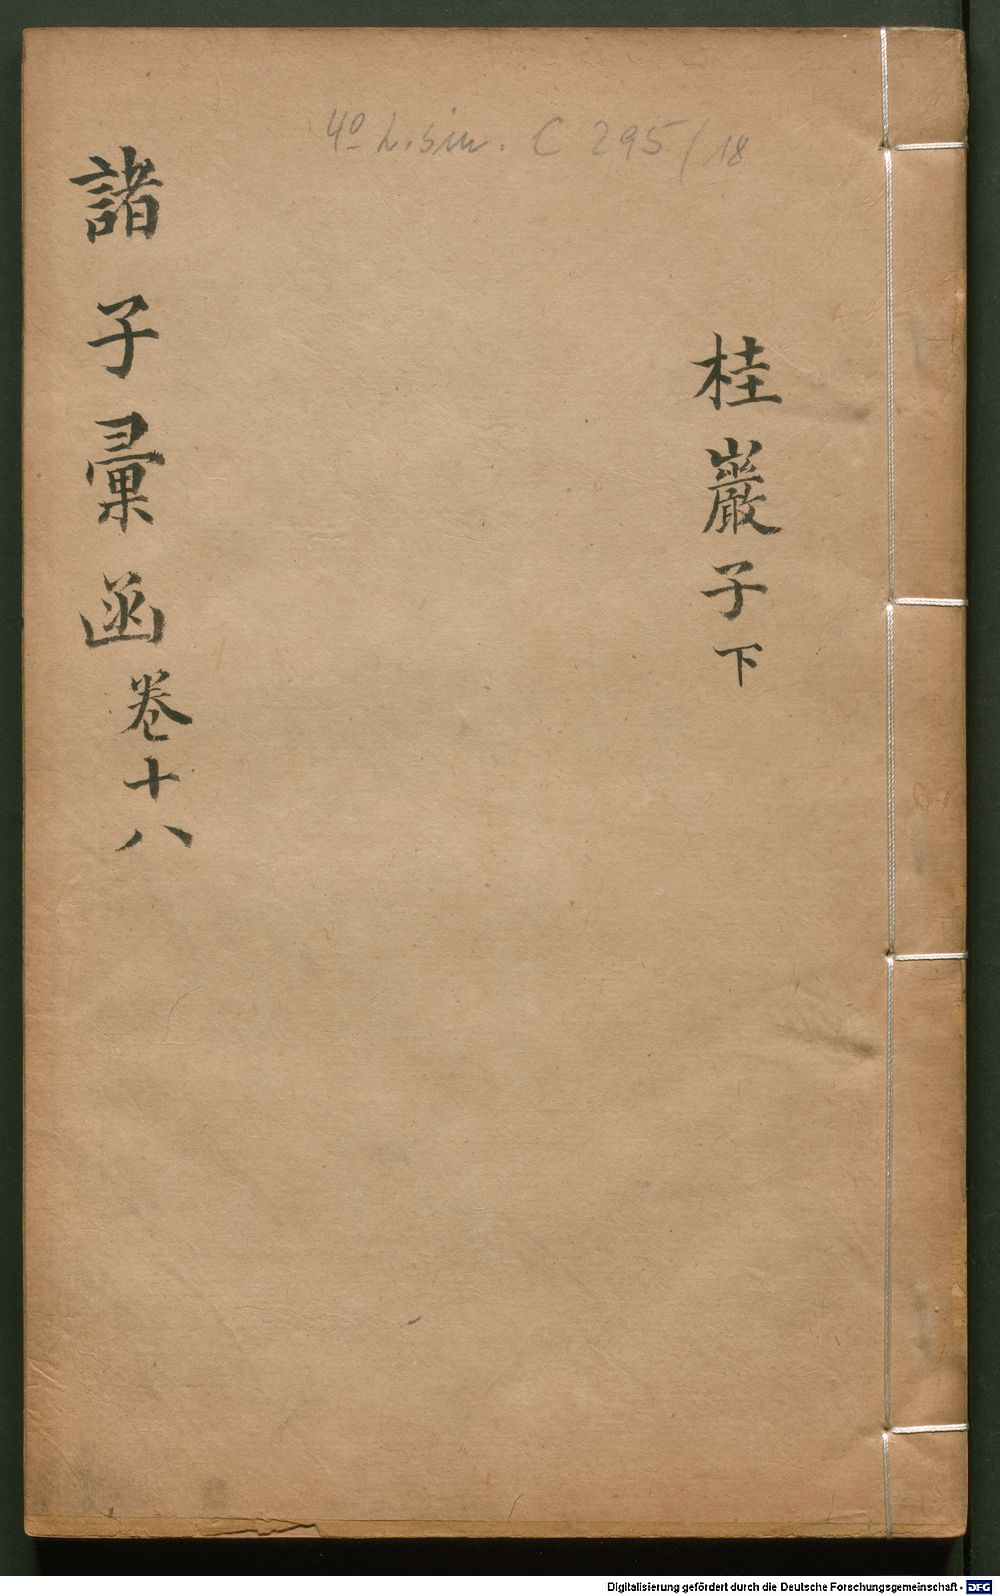 4º L.sin. C 295/18
桂巖子下
諸子彙函卷十八
Digitalisierung gefördert durch die Deutsche Forschungsgemeinschaft - DFG